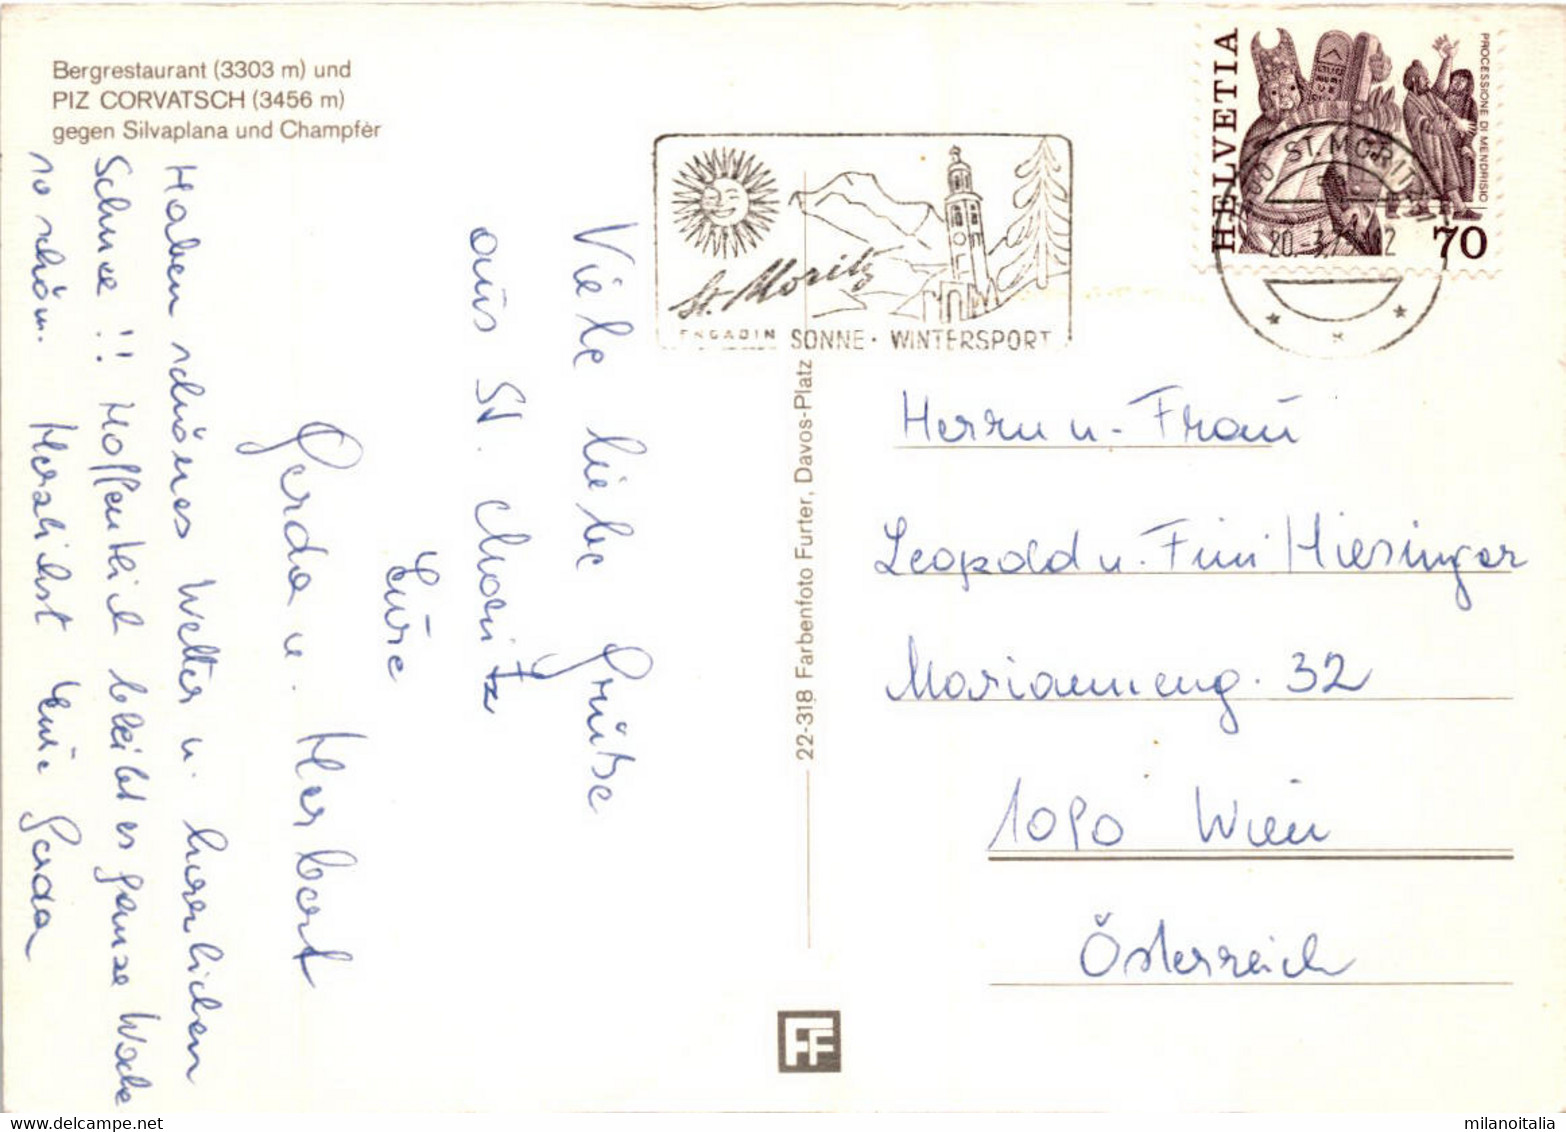 Bergrestaurant (3303 m) und
PIZ CORVATSCH (3456 m)
gegen Silvaplana und Champfèr
Viele liebe Grüße
aus St. Moritz
Eure
Gerda u. Herbert
Haben schönes Wetter u. herrlichen
Schnee !! Hoffentlich bleibt es ganze Woche
so schön. Herzlichst Eure Gerda
22-318 Farbenfoto Furter, Davos-Platz
St. Moritz
ENGADIN SONNE · WINTERSPORT
HELVETIA
PROCESSIONE DI MENDRISIO
70
ST. MORITZ
20.-3.
Herrn u. Frau
Leopold u. Fini Hiesinger
Marianneng. 32
1090 Wien
Österreich
FF
milanoitalia